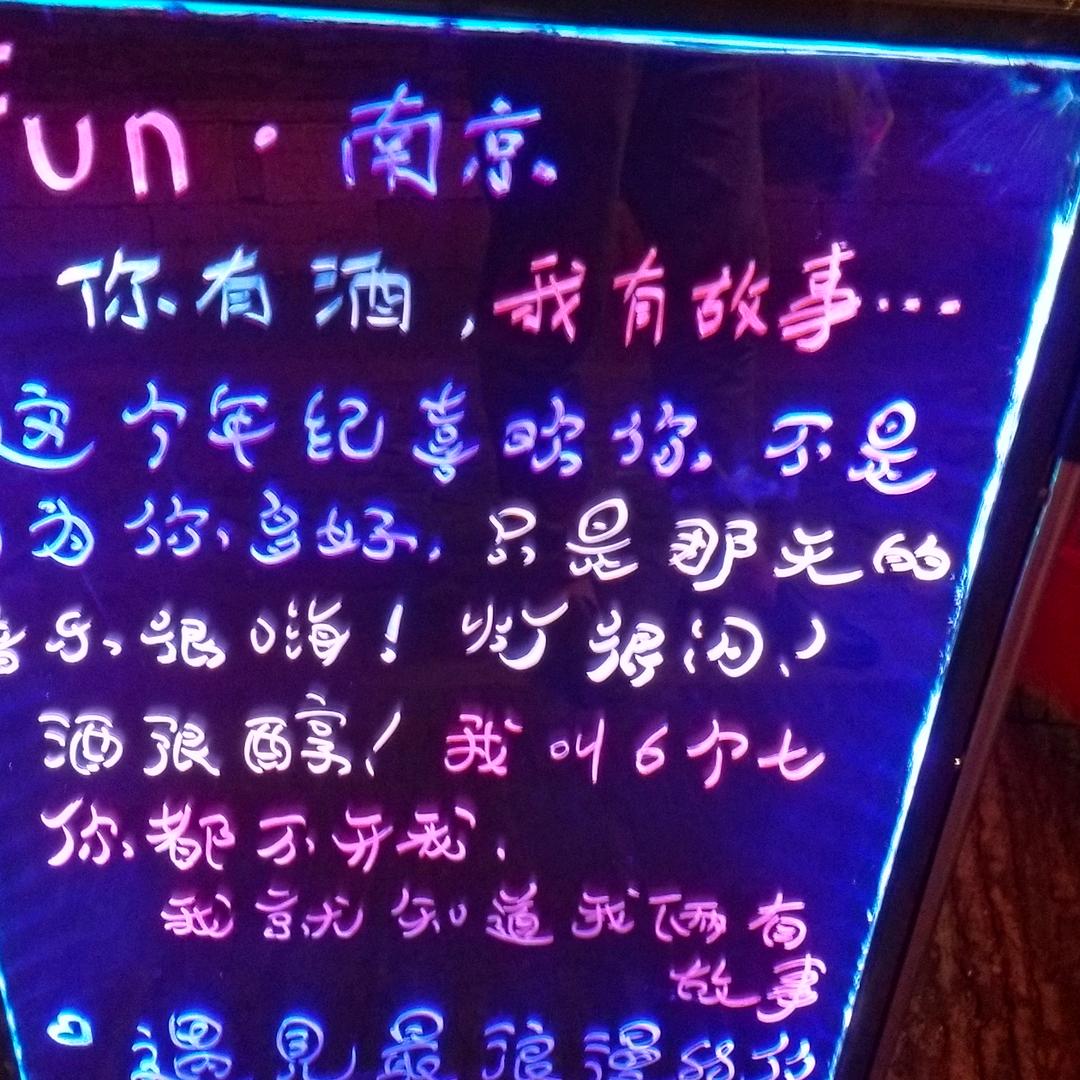 Fun·南京
你有酒,我有故事…
这个年纪喜欢你.不是
为你多好.只是那天的
音乐很嗨!灯很闪!
酒很醇!我叫6个七
你都不开我.
我就知道我俩有
故事
遇见最浪漫的你